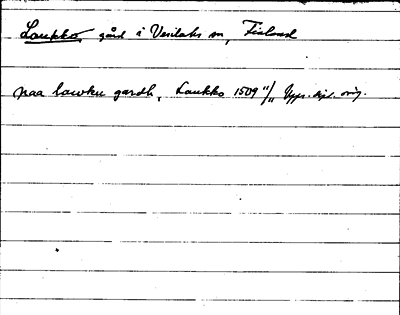 Laukko, gård i Vesilaks sn, Finland
paa lawku gardh, Laukko 1509 11/11 Upps. dipl. orig.